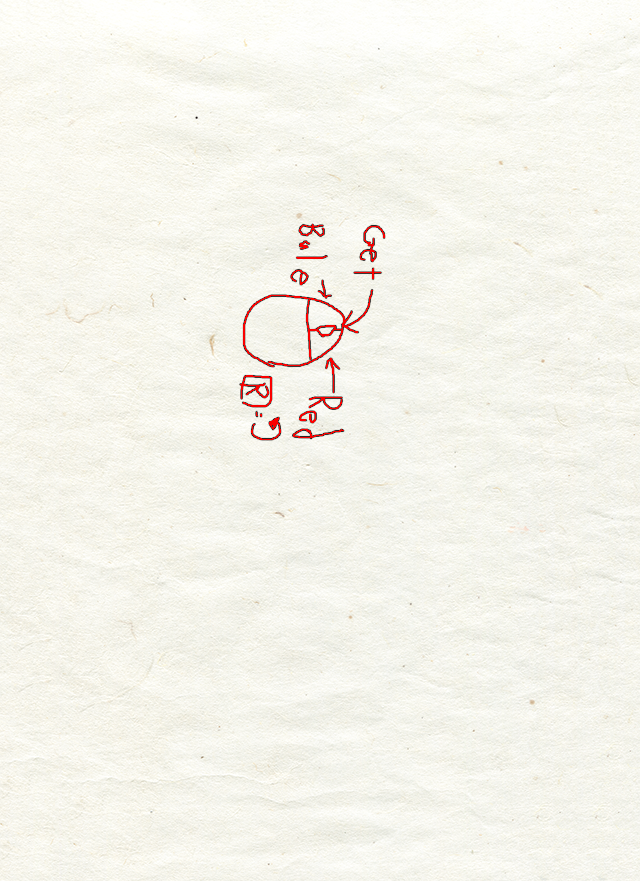 Get
Bule Red
R =